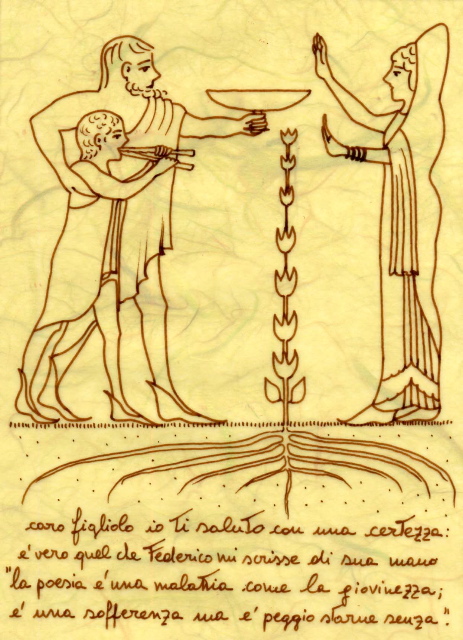 caro figliolo io ti saluto con una certezza:
e' vero quel che Federico mi scrisse di sua mano
"la poesia e' una malattia come la giovinezza;
e' una sofferenza ma e' peggio starne senza".